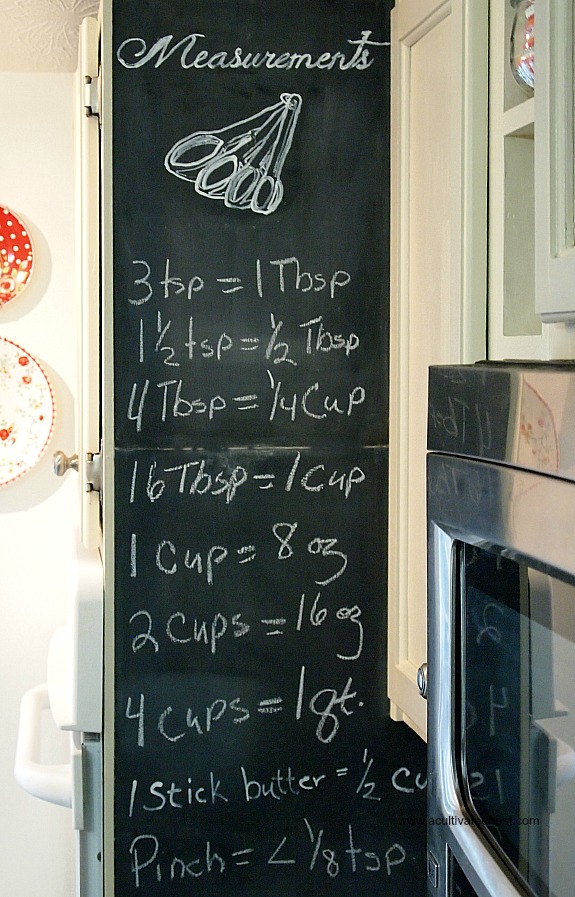 Measurements
3 tsp = 1 Tbsp
1 1/2 tsp = 1/2 Tbsp
4 Tbsp = 1/4 Cup
16 Tbsp = 1 Cup
1 Cup = 8 oz
2 Cups = 16 oz
4 Cups = 1 qt.
1 Stick butter = 1/2 Cu
www.acultivatednest.com
Pinch = < 1/8 tsp